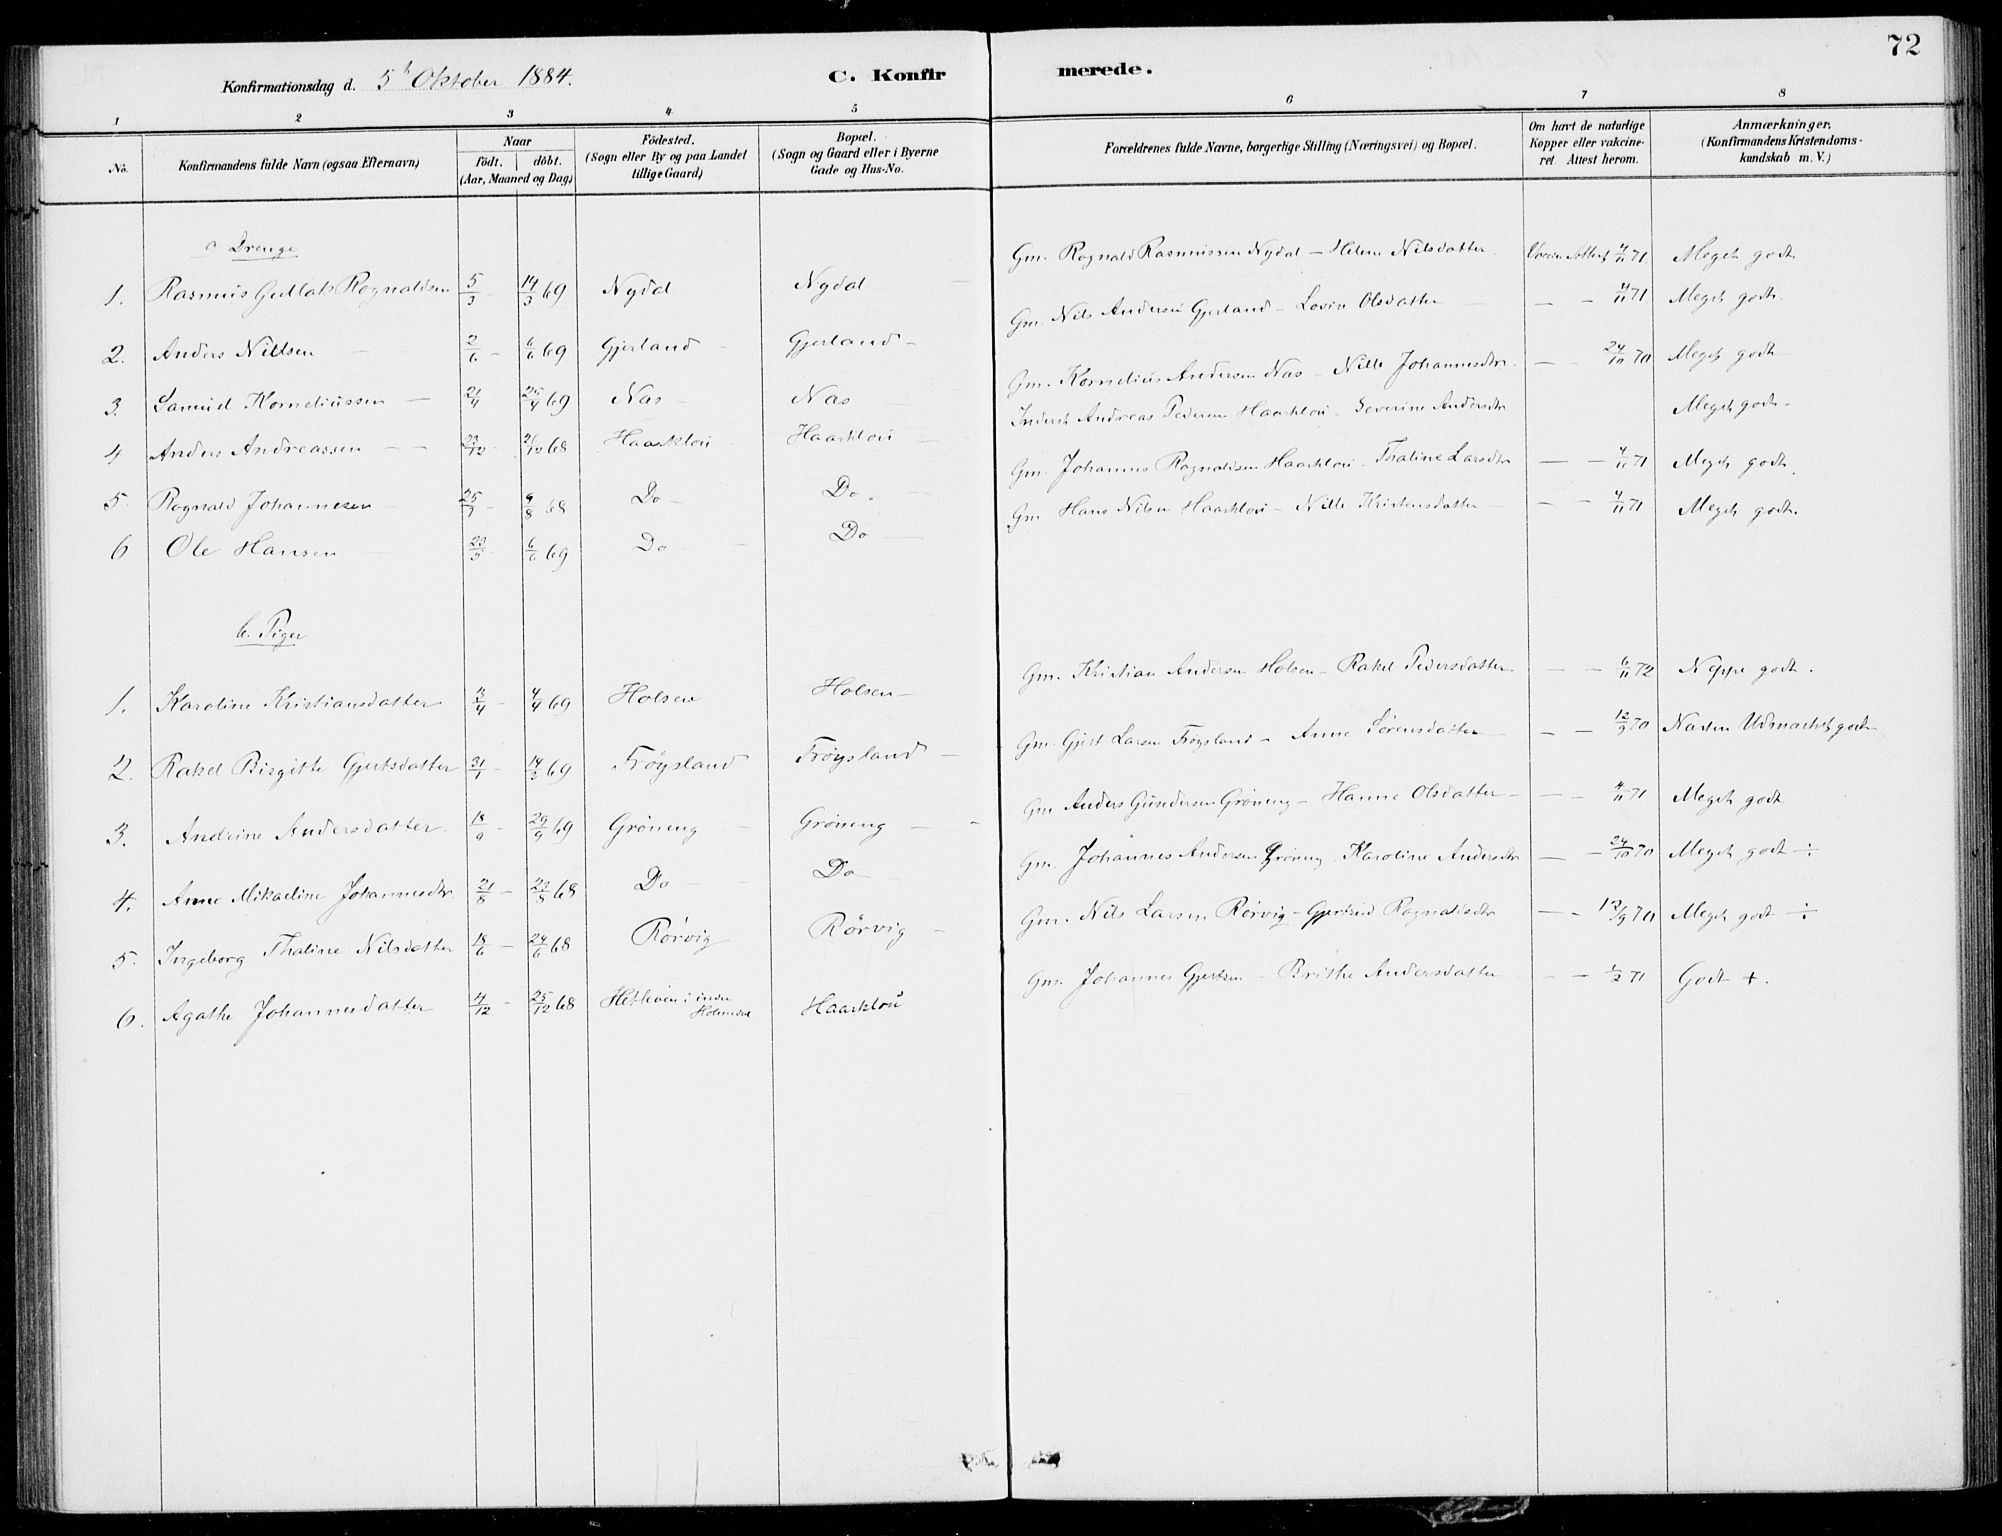 72
Konfirmationsdag d. 5te Oktober 1884.
C. Konfirmerede.
1 2 3 4 5 6 7 8
No.
Konfirmandens fulde Navn (ogsaa Efternavn)
Naar
födt. döbt.
(Aar, Maaned og Dag)
Födested.
(Sogn eller By og paa Landet
tillige Gaard)
Bopæl.
(Sogn og Gaard eller i Byerne
Gade og Hus-No.
Forældrenes fulde Navne, borgerlige Stilling (Næringsvei) og Bopæl.
Om havt de naturlige
Kopper eller vakcine-
ret Attest herom.
Anmærkninger.
(Konfirmandens Kristendoms-
kundskab m. V.)
a Drenge
1. Rasmus Gullak Rognaldsen 5/3 - 14/3 69 Nydal Nydal Gm. Rognald Rasmussen Nydal - Helene Nilsdatter Vaccin Attest 4/11 71 Meget godt
2. Anders Nillsen - 2/6 - 6/6 69 Gjerland - Gjerland - Gm. Nils Andersen Gjerland - Lovise Olsdatter - - 4/11 71 Meget godt.
3. Samuel Korneliussen - 21/4 25/4 69 Nas - Nas Gm. Kornelius Andersen Nas - Nille Johannesdtr. - - 24/10 70 Meget godt
4 Anders Andreassen - - 23/12 26/12 68 Haarklou Haarklou Inderst Andreas Pedersen Haarklou - Severine Andersdtr Meget godt.
5. Rognald Johannesen 25/7 - 9/8 68 Do - Do. Gm. Johannes Rognaldsen Haarklou - Thaline Larsdtr - - 4/11 71 Meget godt.
6 Ole Hansen 23/5 6/6 69 Do - Do Gm Hans Nilsen Haarklou - Nille Kristensdatter - - 4/11 71 Meget godt.
b. Piger
1. Karoline Kristiansdatter 2/4 - 4/4 69 Holsen Holsen - Gm. Kristian Andersen Holsen - Rakel Pedersdatter - - 6/11 72 Neppe godt.
2. Rakel Birgitte Gjertsdatter 31/1 - 14/3 69 Fröysland Fröysland - Gm. Gjert Larsen Fröysland - Anne Sörensdatter - - 12/9 70 Næsten Udmærket godt
3. Andrine Andersdatter 18/9 - 29/9 69 Gröneng - Gröneng - - Gm Anders Gundersen Gröneng - Hanne Olsdatter - - - 4/11 71 Meget godt
4. Anne Mikaeline Johannesdtr. 21/8 - 23/8 68 Do - Do - Gm. Johannes Andersen Gröneng - Karoline Andersdtr - - 24/10 70 Meget godt ÷
5. Ingeborg Thaline Nilsdatter 18/6 - 24/6 68 Rörvig Rörvig - Gm. Nils Larsen Rörvig - Gjertrud Rognaldsdtr - - 12/9 70 Meget godt ÷
6. Agathe Johannesdatter 4/12 - 25/12 68 i indre Holmedal Haarklou Gm. Johannes Gjertsen - Brithe Andersdatter - - 1/2 71 Godt +.